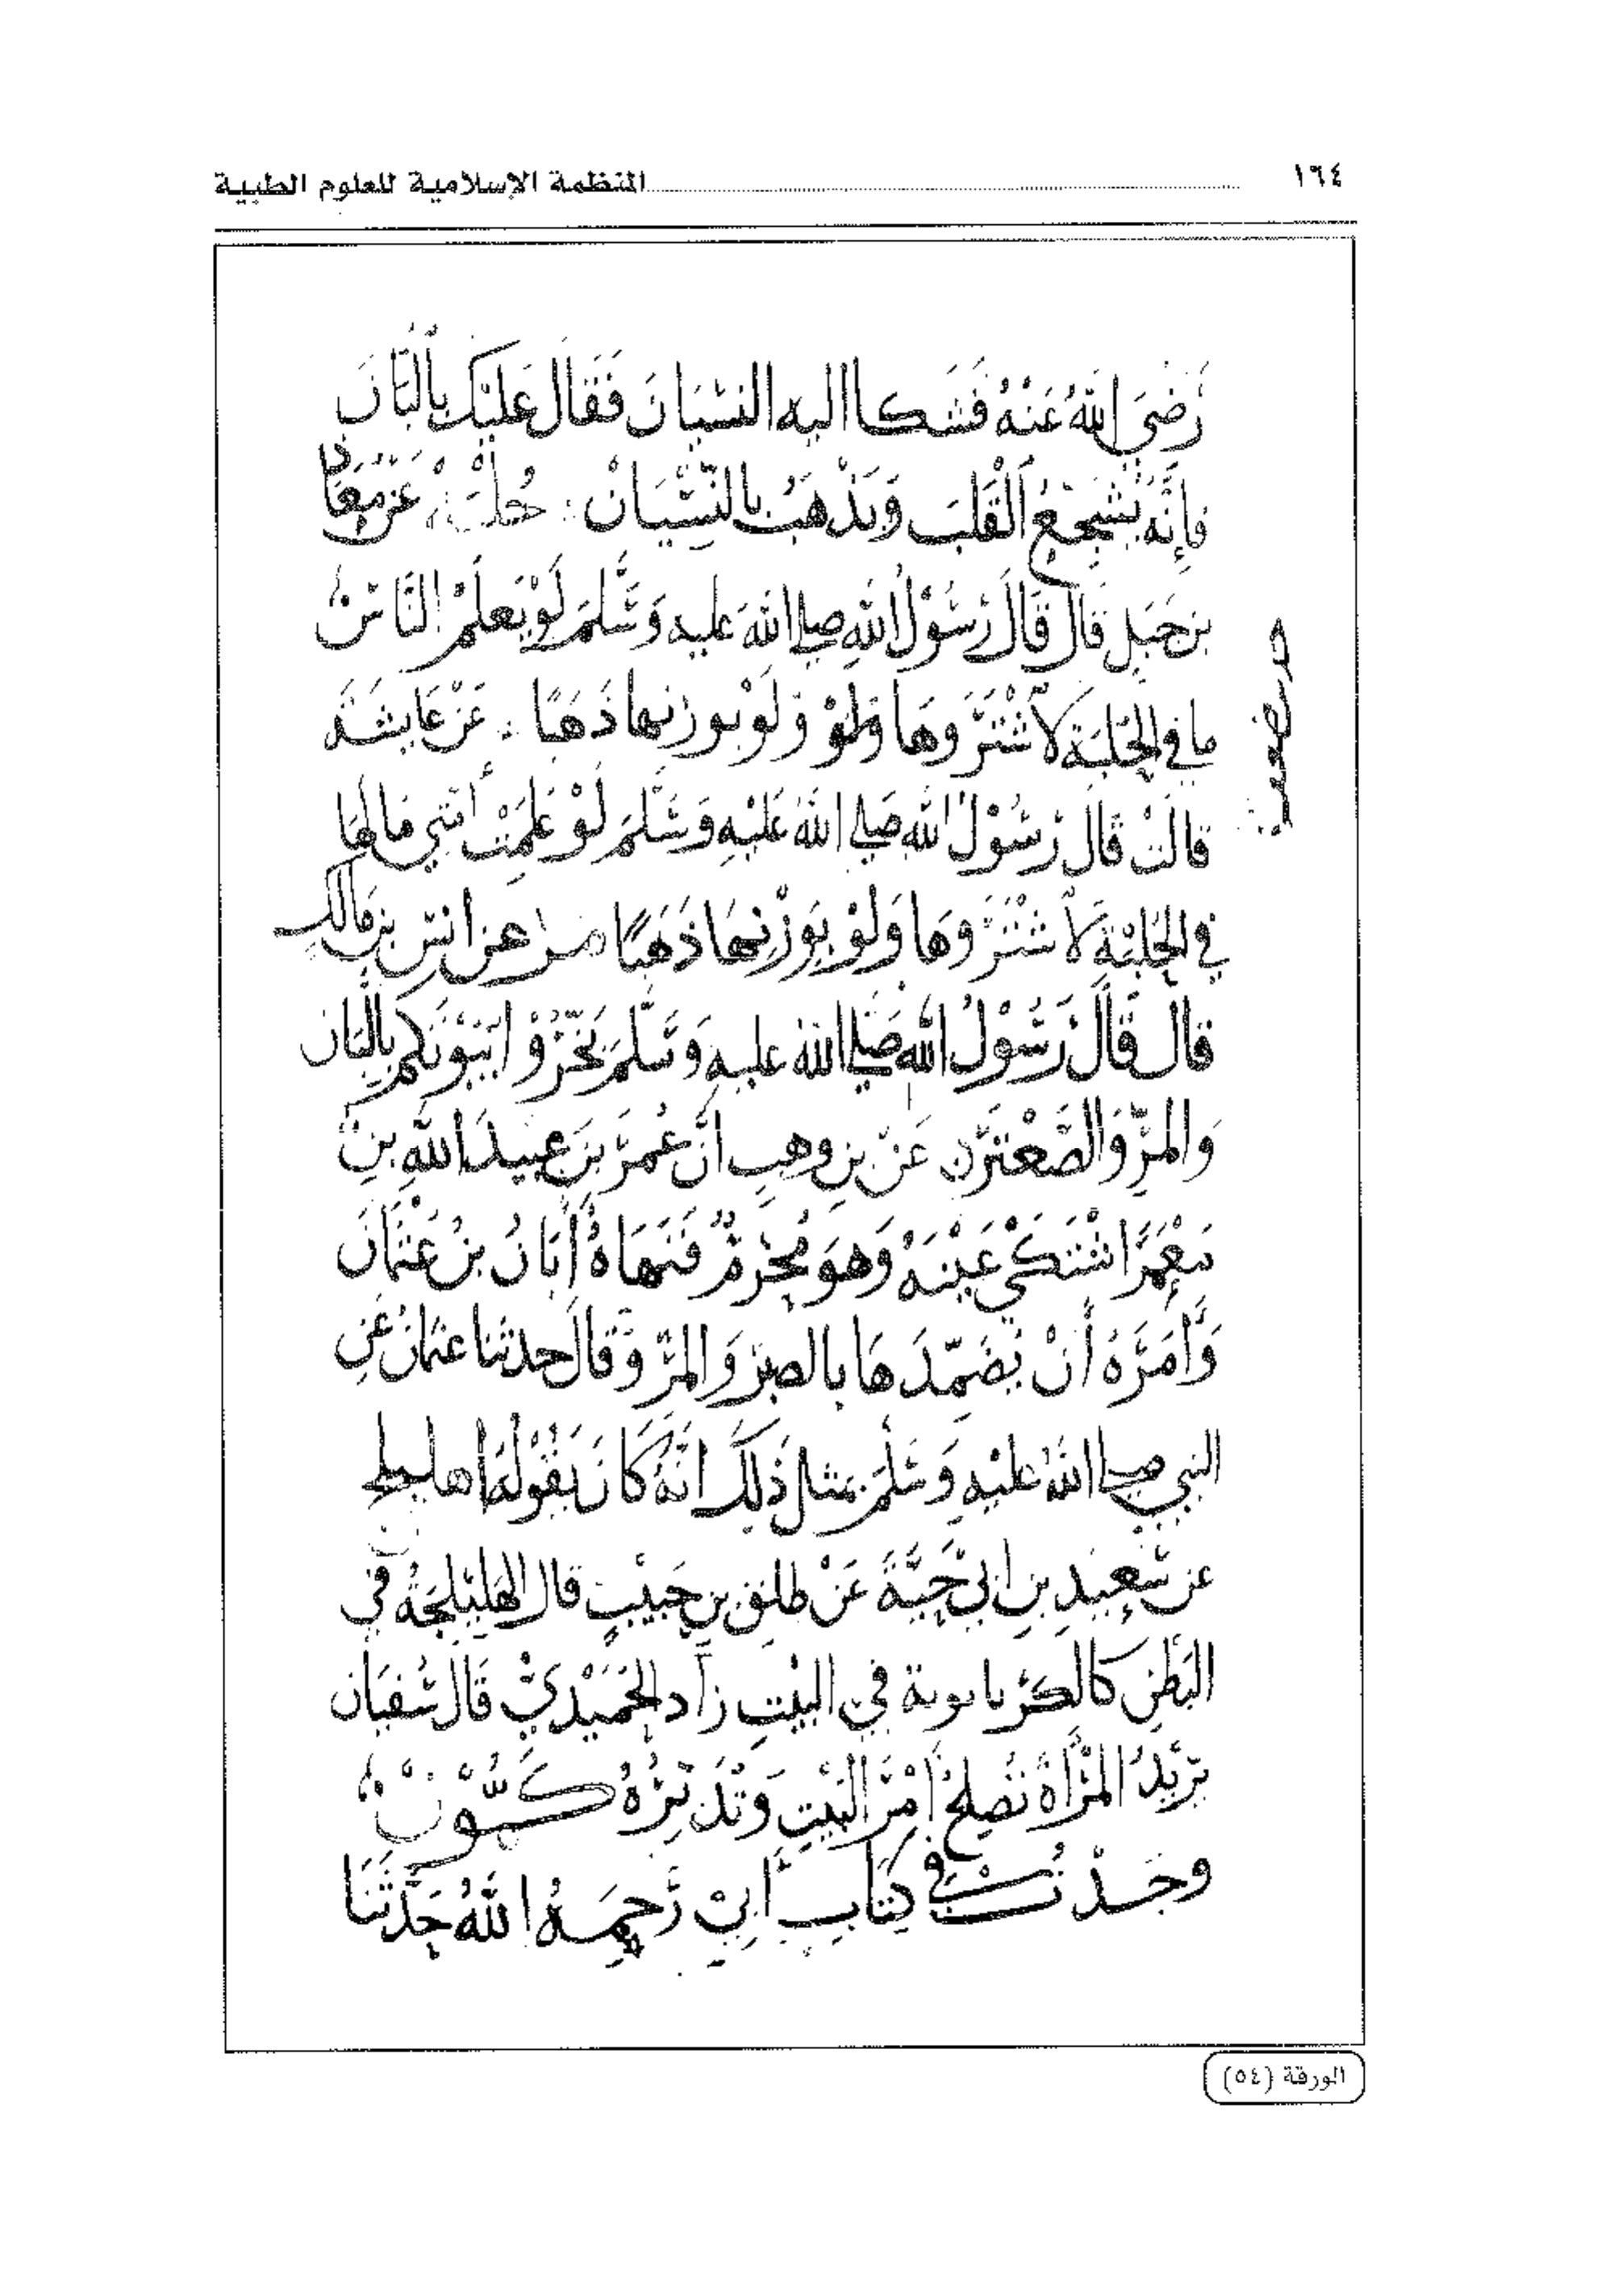 ١٦٤ المنظمة الإسلامية للعلوم الطبية
رَضِيَ اللهُ عَنْهُ فَشَكا اليه النسْيَانَ فَقَالَ عَلَيْكَ بِالُّلبَانَ
فَإِنَّهُ يُشَجِّعُ الْقَلْبَ وَيَذْهَبُ بِالنِّسْيَانْ حُلْبَه عَنْ مُعَاذِ
بن جَبَلٍ قَالَ قَالَ رَسُوْلُ اللهِ صلى اللهُ عليه وَسَّلَمَ لَوْ يَعلَمْ النَّاسْ
ما في الحُلبَةِ لاَشْتَرَوهَا ولو وَلَوْ بوزنها ذَهَبًا عَنْ عَايشَةَ
قَالَتْ قَالَ رَسُوْلُ اللهِ صَلى اللهُ عَلَيْهِ وَسَّلَمَ لَوْ عَلِمَتْ أُمَّتِي مَا لَهَا
فِي الحُلبَةِ لاَشْتَرَوهَا وَلَوْ بِوَزْنِهَا ذَهَبًا مر عن انَسِ بنِ مَالكٍ
قَالَ قَالَ رَسُوْلُ اللهِ صَلى الله عليهِ وَسَّلَمَ بَخِّرُوْا بُيُوْتَكم بِاللبَان
وَالمرِّ وَالصَّعْتَر عَنْ بنِ وهبٍ انَّ عُمَرَ بنَ عبيد اللهِ بنِ
مَعْمَرٍ اشْتَكَىْ عَيْنَهُ وَهوَ مُحْرِمٌ فَنَهَاهُ أَبَانُ بنُ عُثْمَانَ
وَأَمَرَهُ أَنْ يُضَمِّدَهَا بالصبْرِ وَالمرِّ وَقَالَ حدثنا عثمانُ عَنِ
النبي صلى اللهُ عليْهِ وَسَلَّمَ بمثل ذَلِكَ انَّهُ كَانَ يَقُوْلُهَا هليلج
عن سَعِيدِ بنِ ابي حَيَّةَ عَنْ طلقِ بنِ حَبِيْبٍ قال الهَلِيْلَجَةُ في
البَطْنِ كَالكرْبانونة في البَيْتِ زَاد الحُمَيْدِيْ قَالَ سُفيَان
يُرِيْدُ المرْأَةَ تُصْلِحُ أَمْرَ البَيْتِ وَتُدَبِّرُهُ كَمُّوْنْ
وجَدْتُ في كِتَابِ أَبِيْ رَحِمَهُ اللهُ حَدَّثَنَا
الورقة (٥٤)